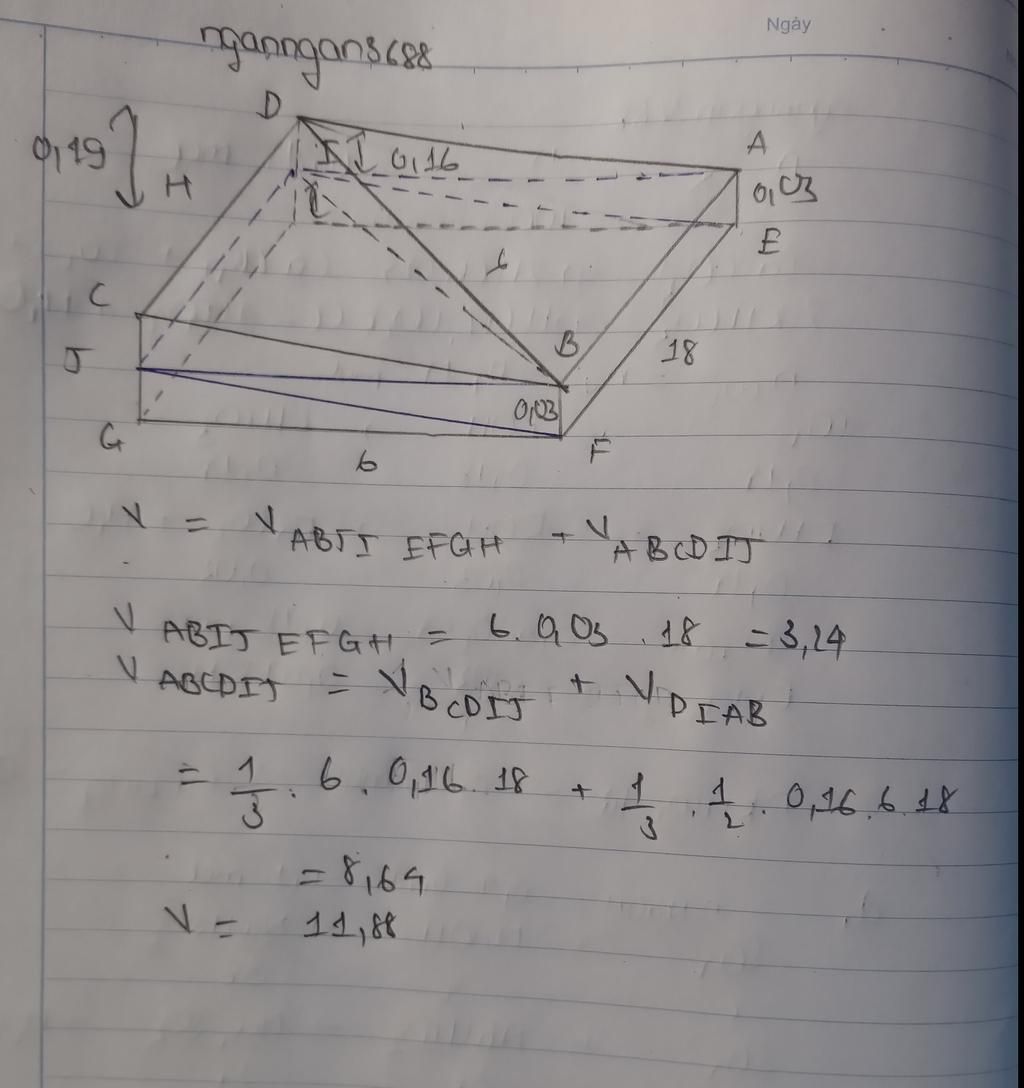 Ngày
nganngan3688
D
0,19
H
I
0,16
A
0,03
E
C
6
B
18
J
0,03
G
F
6
V = V ABJI EFGH + V ABCDIJ
V ABIJ EFGH = 6. 0,03 .18 = 3,24
V ABCDIJ = V BCDIJ + V DIAB
= 1/3 . 6 . 0,16 . 18 + 1/3 . 1/2 . 0,16 . 6 . 18
= 8,64
V = 11,88